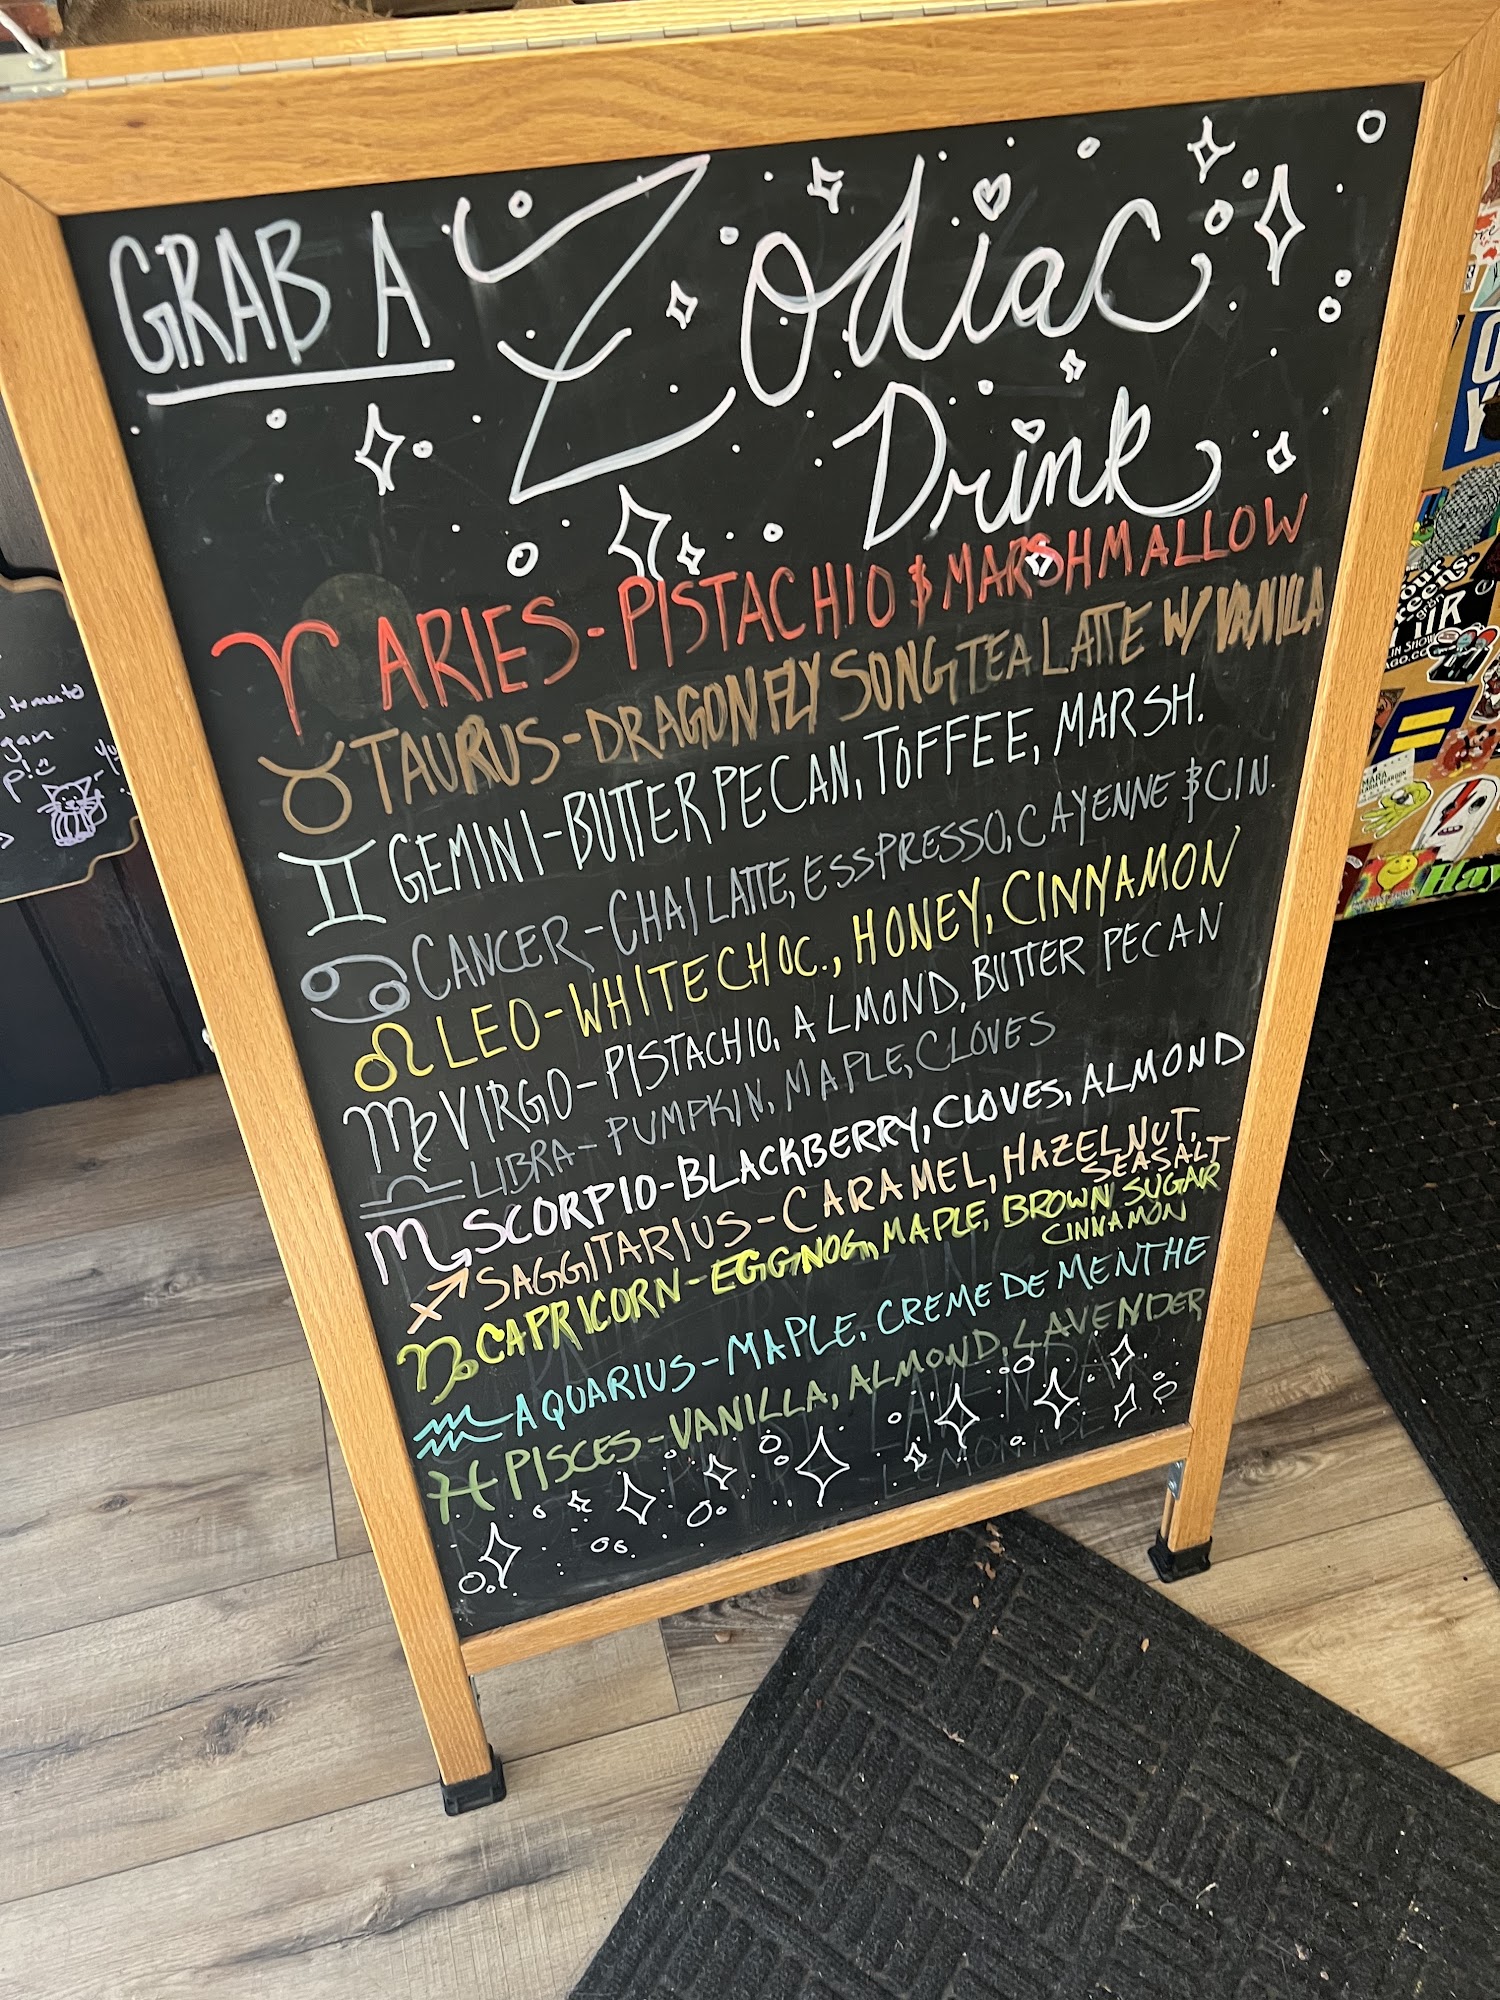 GRAB A Zodiac
Drink
♈ ARIES - PISTACHIO & MARSHMALLOW
♉ TAURUS - DRAGONFLY SONG TEA LATTE W/ VANILLA
♊ GEMINI - BUTTER PECAN, TOFFEE, MARSH.
♋ CANCER - CHAI LATTE, ESSPRESSO, CAYENNE & CIN.
♌ LEO - WHITE CHOC., HONEY, CINNAMON
♍ VIRGO - PISTACHIO, ALMOND, BUTTER PECAN
♎ LIBRA - PUMPKIN, MAPLE, CLOVES
♏ SCORPIO - BLACKBERRY, CLOVES, ALMOND
♐ SAGGITARIUS - CARAMEL, HAZELNUT,
SEASALT
♑ CAPRICORN - EGGNOG, MAPLE, BROWN SUGAR
CINNAMON
♒ AQUARIUS - MAPLE, CREME DE MENTHE
♓ PISCES - VANILLA, ALMOND, LAVENDER
LEMONADE
Hay